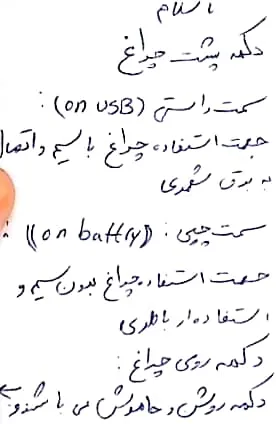 با سلام
دکمه پشت چراغ
سمت راستی (on USB) :
جهت استفاده چراغ با سیم و اتصال
به برق شهری
سمت چپی : (on battry) :
جهت استفاده چراغ بدون سیم و
استفاده از باطری
دکمه روی چراغ :
دکمه روشن و خاموش می باشد و